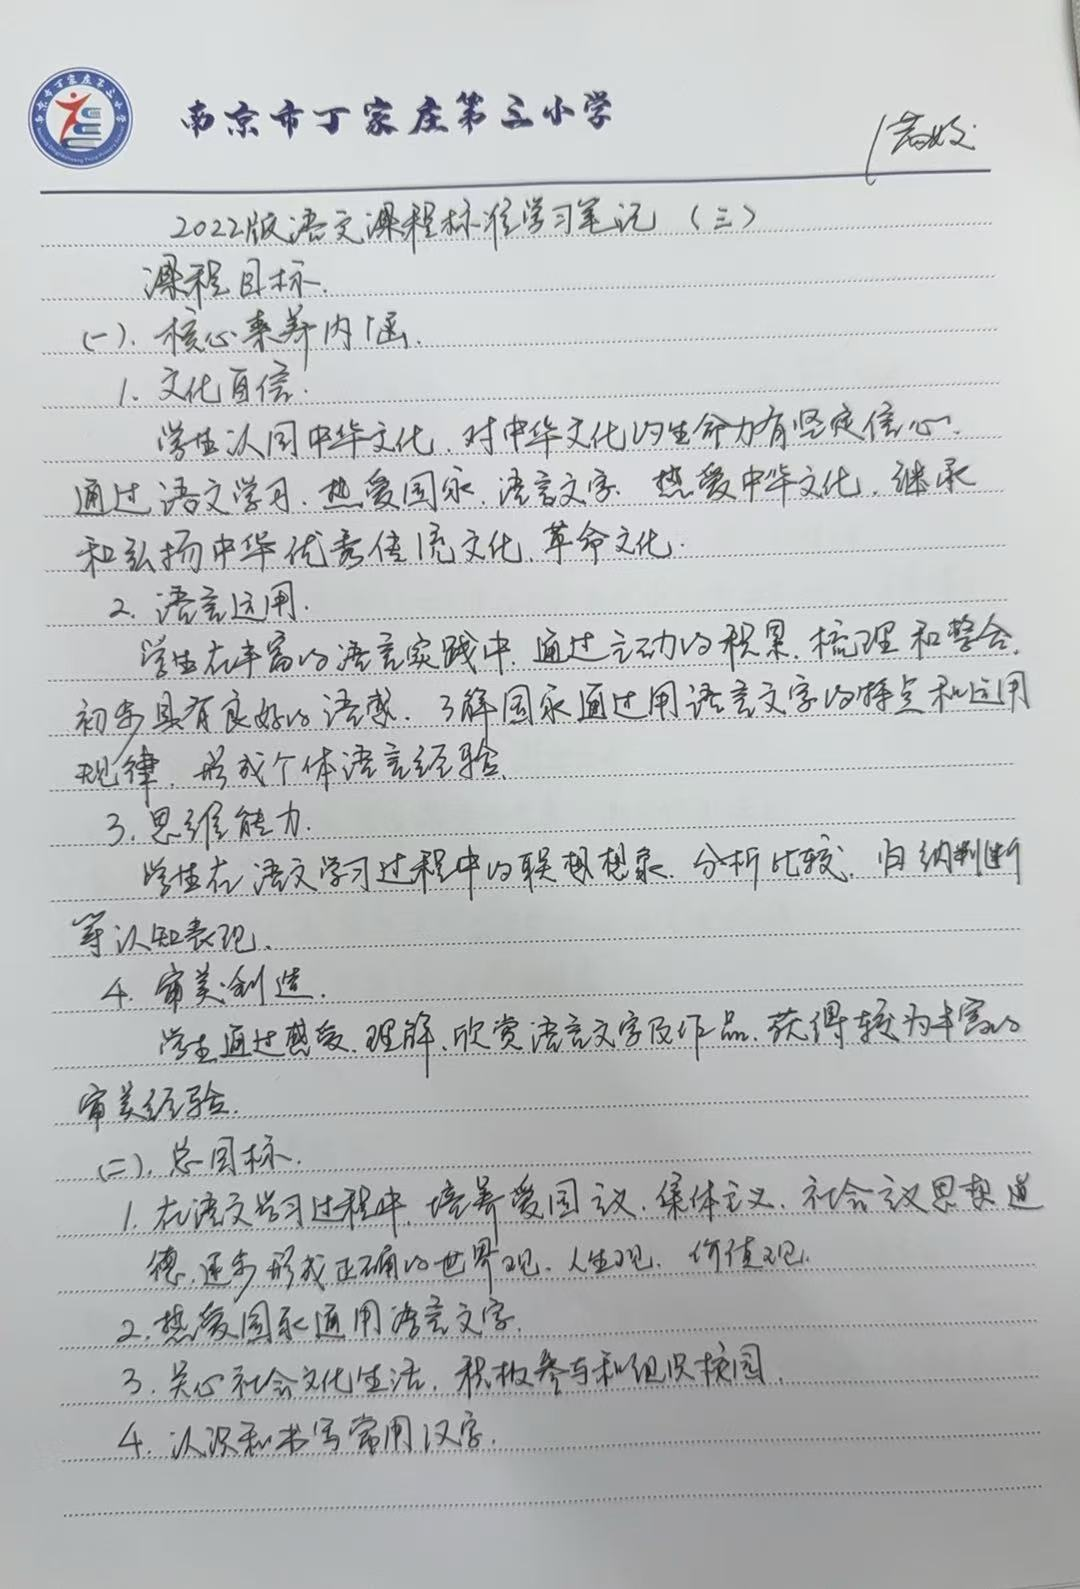 南京市丁家庄第三小学
2022版语文课程标准学习笔记（三）
课程目标.
(一).核心素养内涵.
1.文化自信.
学生认同中华文化,对中华文化的生命力有坚定信心.
通过语文学习,热爱国家,语言文字.热爱中华文化,继承
和弘扬中华优秀传统文化,革命文化.
2.语言运用.
学生在丰富的语言实践中,通过主动的积累,梳理和整合,
初步具有良好的语感.了解国家通过用语言文字的特点和运用
规律,形成个体语言经验.
3.思维能力.
学生在语文学习过程中的联想想象,分析比较,归纳判断
等认知表现.
4.审美创造.
学生通过感受,理解,欣赏语言文字及作品,获得较为丰富的
审美经验.
(二).总目标.
1.在语文学习过程中,培养爱国主义,集体主义,社会主义思想道
德,逐步形成正确的世界观,人生观,价值观.
2.热爱国家通用语言文字.
3.关心社会文化生活,积极参与和组织校园.
4.认识和书写常用汉字.